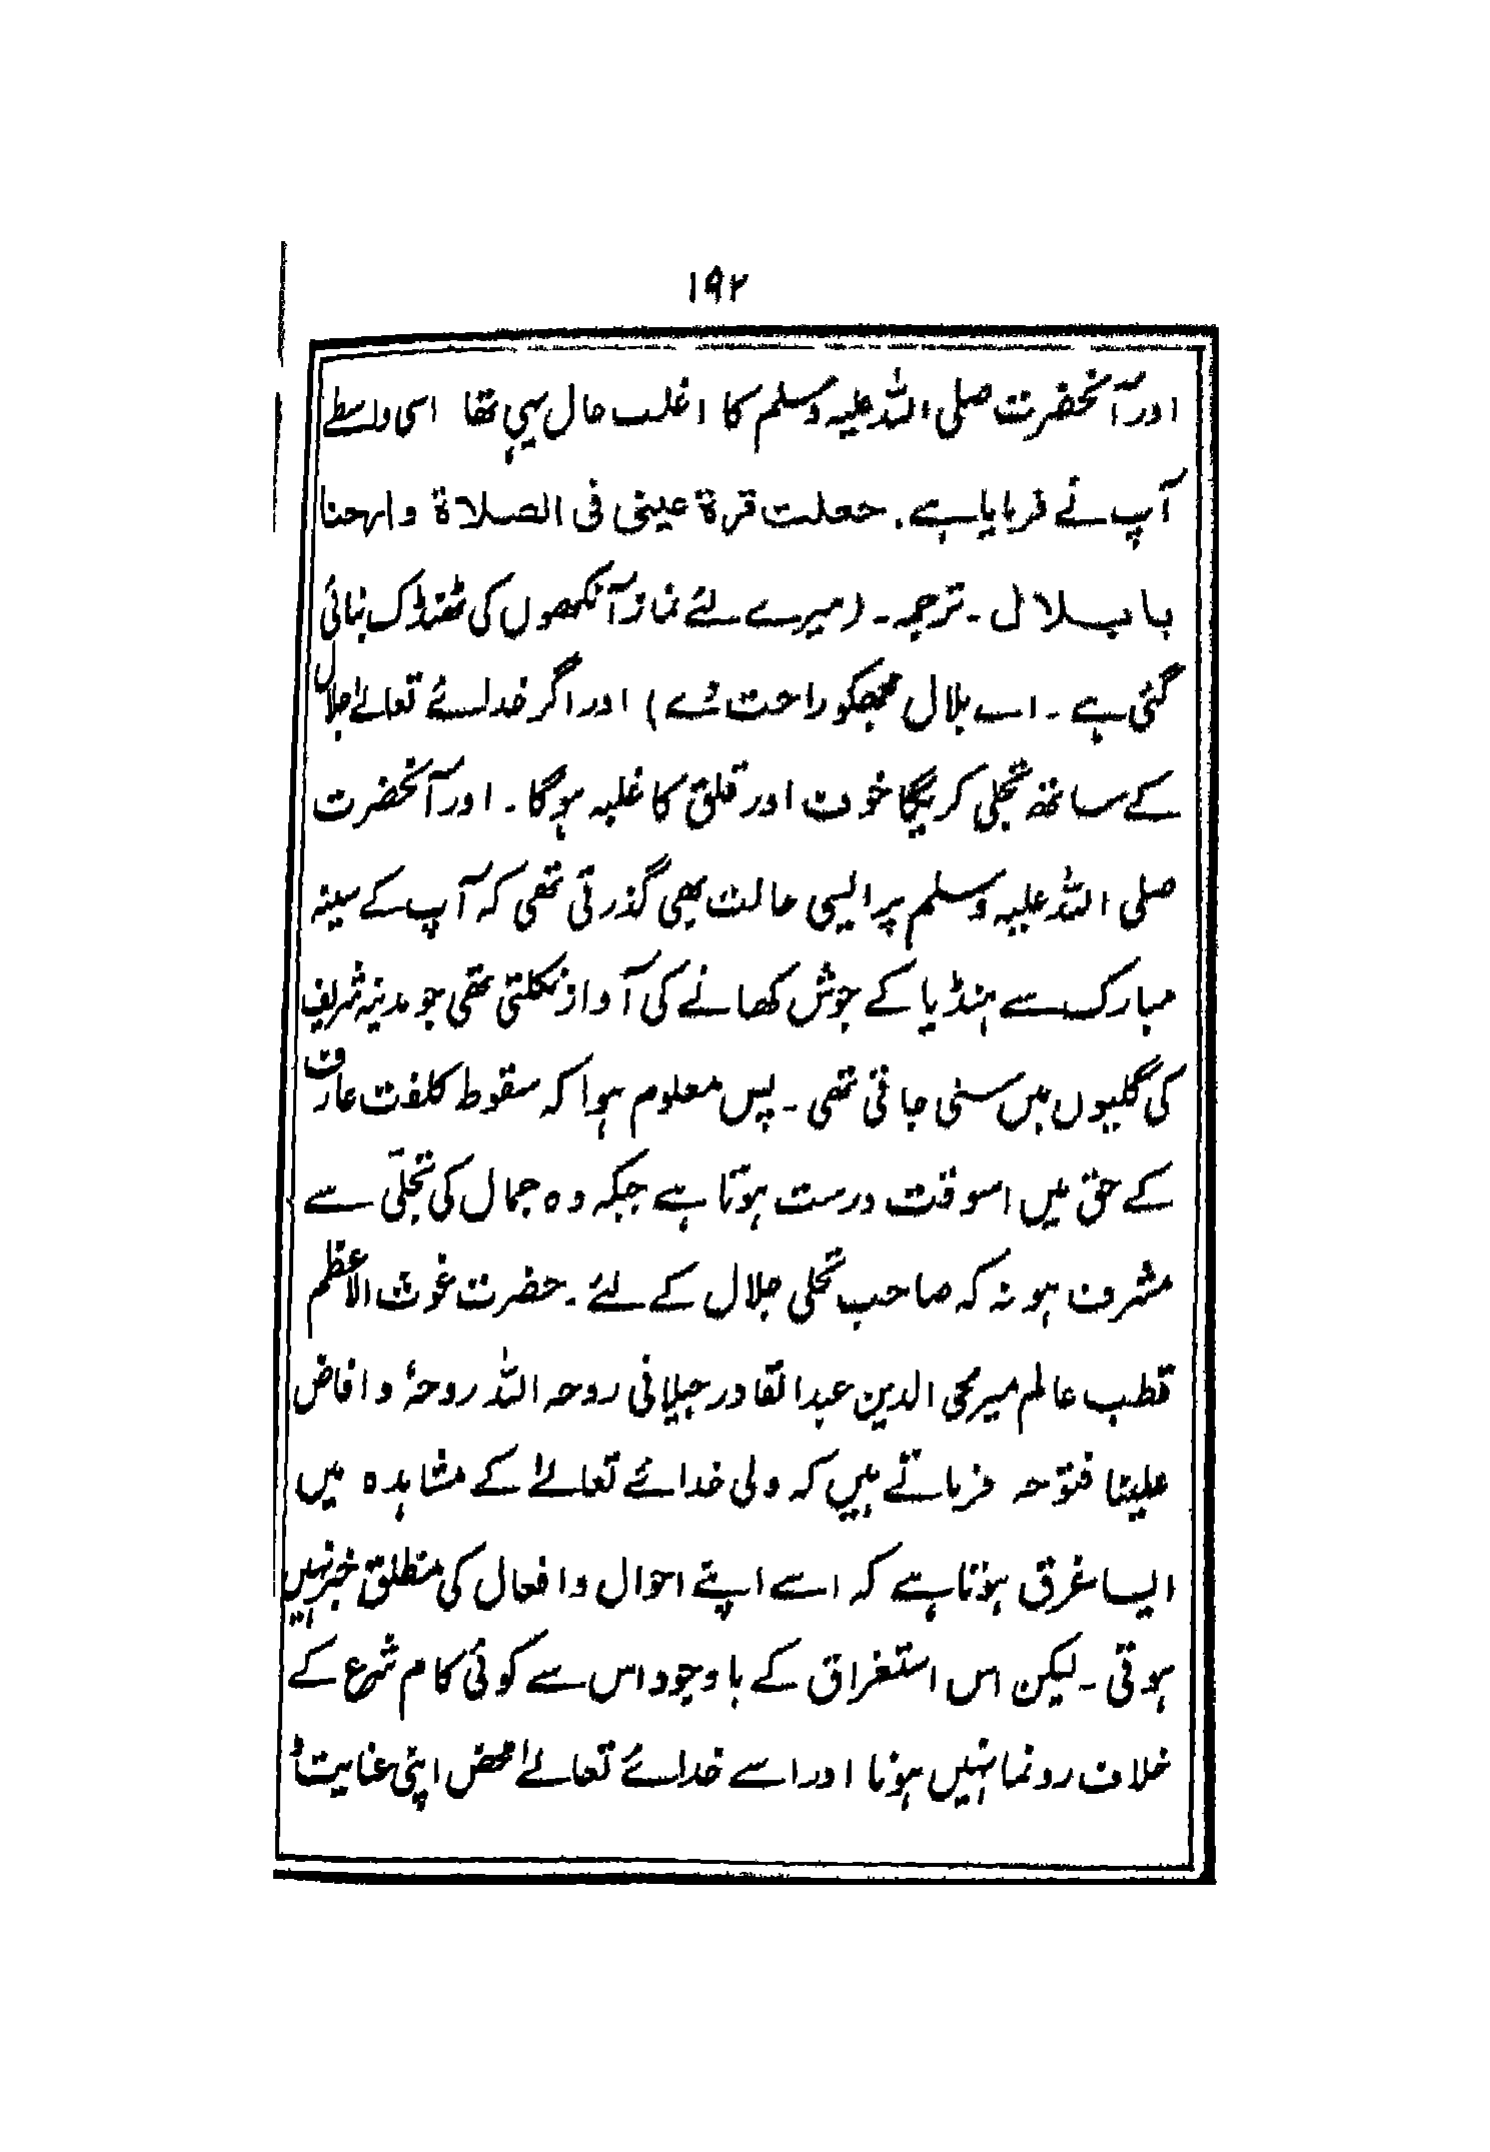 ۱۹۲
اور آنحضرت صلی اللہ علیہ وسلم کا اغلب حال یہی تھا اسی واسطے
آپ نے فرمایا ہے۔ جعلت قرة عینی فی الصلاة وارحنا
یا بلال ۔ ترجمہ ۔ (میرے لئے نماز آنکھوں کی ٹھنڈک بنائی
گئی ہے ۔ اے بلال مجھکو راحت دے) اور اگر خدائے تعالےٰ جلال
کے ساتھ تجلی کریگا خوف اور قلق کا غلبہ ہوگا ۔ اور آنحضرت
صلی اللہ علیہ وسلم پر ایسی حالت بھی گذرتی تھی کہ آپ کے سینہ
مبارک سے ہنڈیا کے جوش کھانے کی آواز نکلتی تھی جو مدینہ شریف
کی گلیوں میں سنی جاتی تھی ۔ پس معلوم ہوا کہ سقوط کلفت عارف
کے حق میں اسوقت درست ہوتا ہے جبکہ وہ جمال کی تجلّی سے
مشرف ہو نہ کہ صاحب تجلی جلال کے لئے ۔ حضرت غوث الاعظم
قطب عالم میر محی الدین عبدالقادر جیلانی روحہ اللہ روحہٗ و افاض
علینا فتوحہ فرماتے ہیں کہ ولی خدائے تعالےٰ کے مشاہدہ میں
ایسا غرق ہوتا ہے کہ اسے اپنے احوال و افعال کی مطلق خبر نہیں
ہوتی ۔ لیکن اس استغراق کے باوجود اس سے کوئی کام شرع کے
خلاف رونما نہیں ہوتا اور اسے خدائے تعالےٰ محض اپنی عنایت